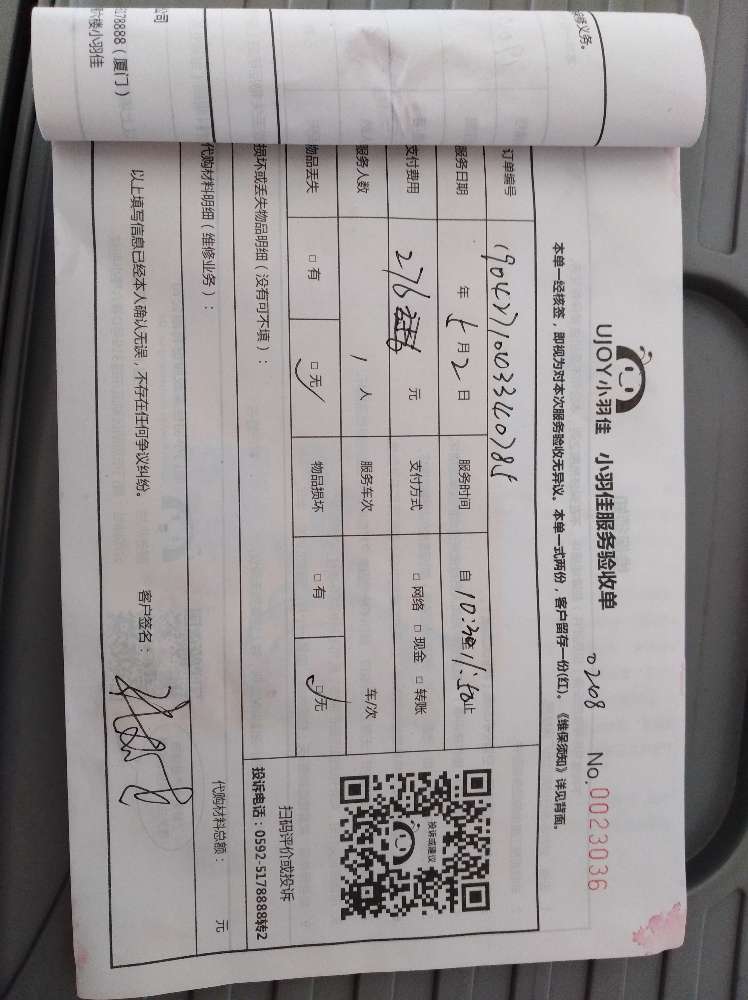 UJOY小羽佳 小羽佳服务验收单
0208 No.0023036
本单一经核签，即视为对本次服务验收无异议。本单一式两份，客户留存一份(红)。《维保须知》详见背面。
订单编号
服务日期 年 5月2日 服务时间 自10:30至11:50止
支付费用 276 元 支付方式 □网络 □现金 □转账
服务人数 1 人 服务车次 车/次
物品丢失 □有 □无 物品损坏 □有 □无
投诉或建议
扫码评价或投诉
投诉电话：0592-5178888转2
损坏或丢失物品明细（没有可不填）：
代购材料明细（维修业务）： 代购材料总额： 元
以上填写信息已经本人确认无误，不存在任何争议纠纷。 客户签名：
修义务。
公司
5178888（厦门）
楼小羽佳